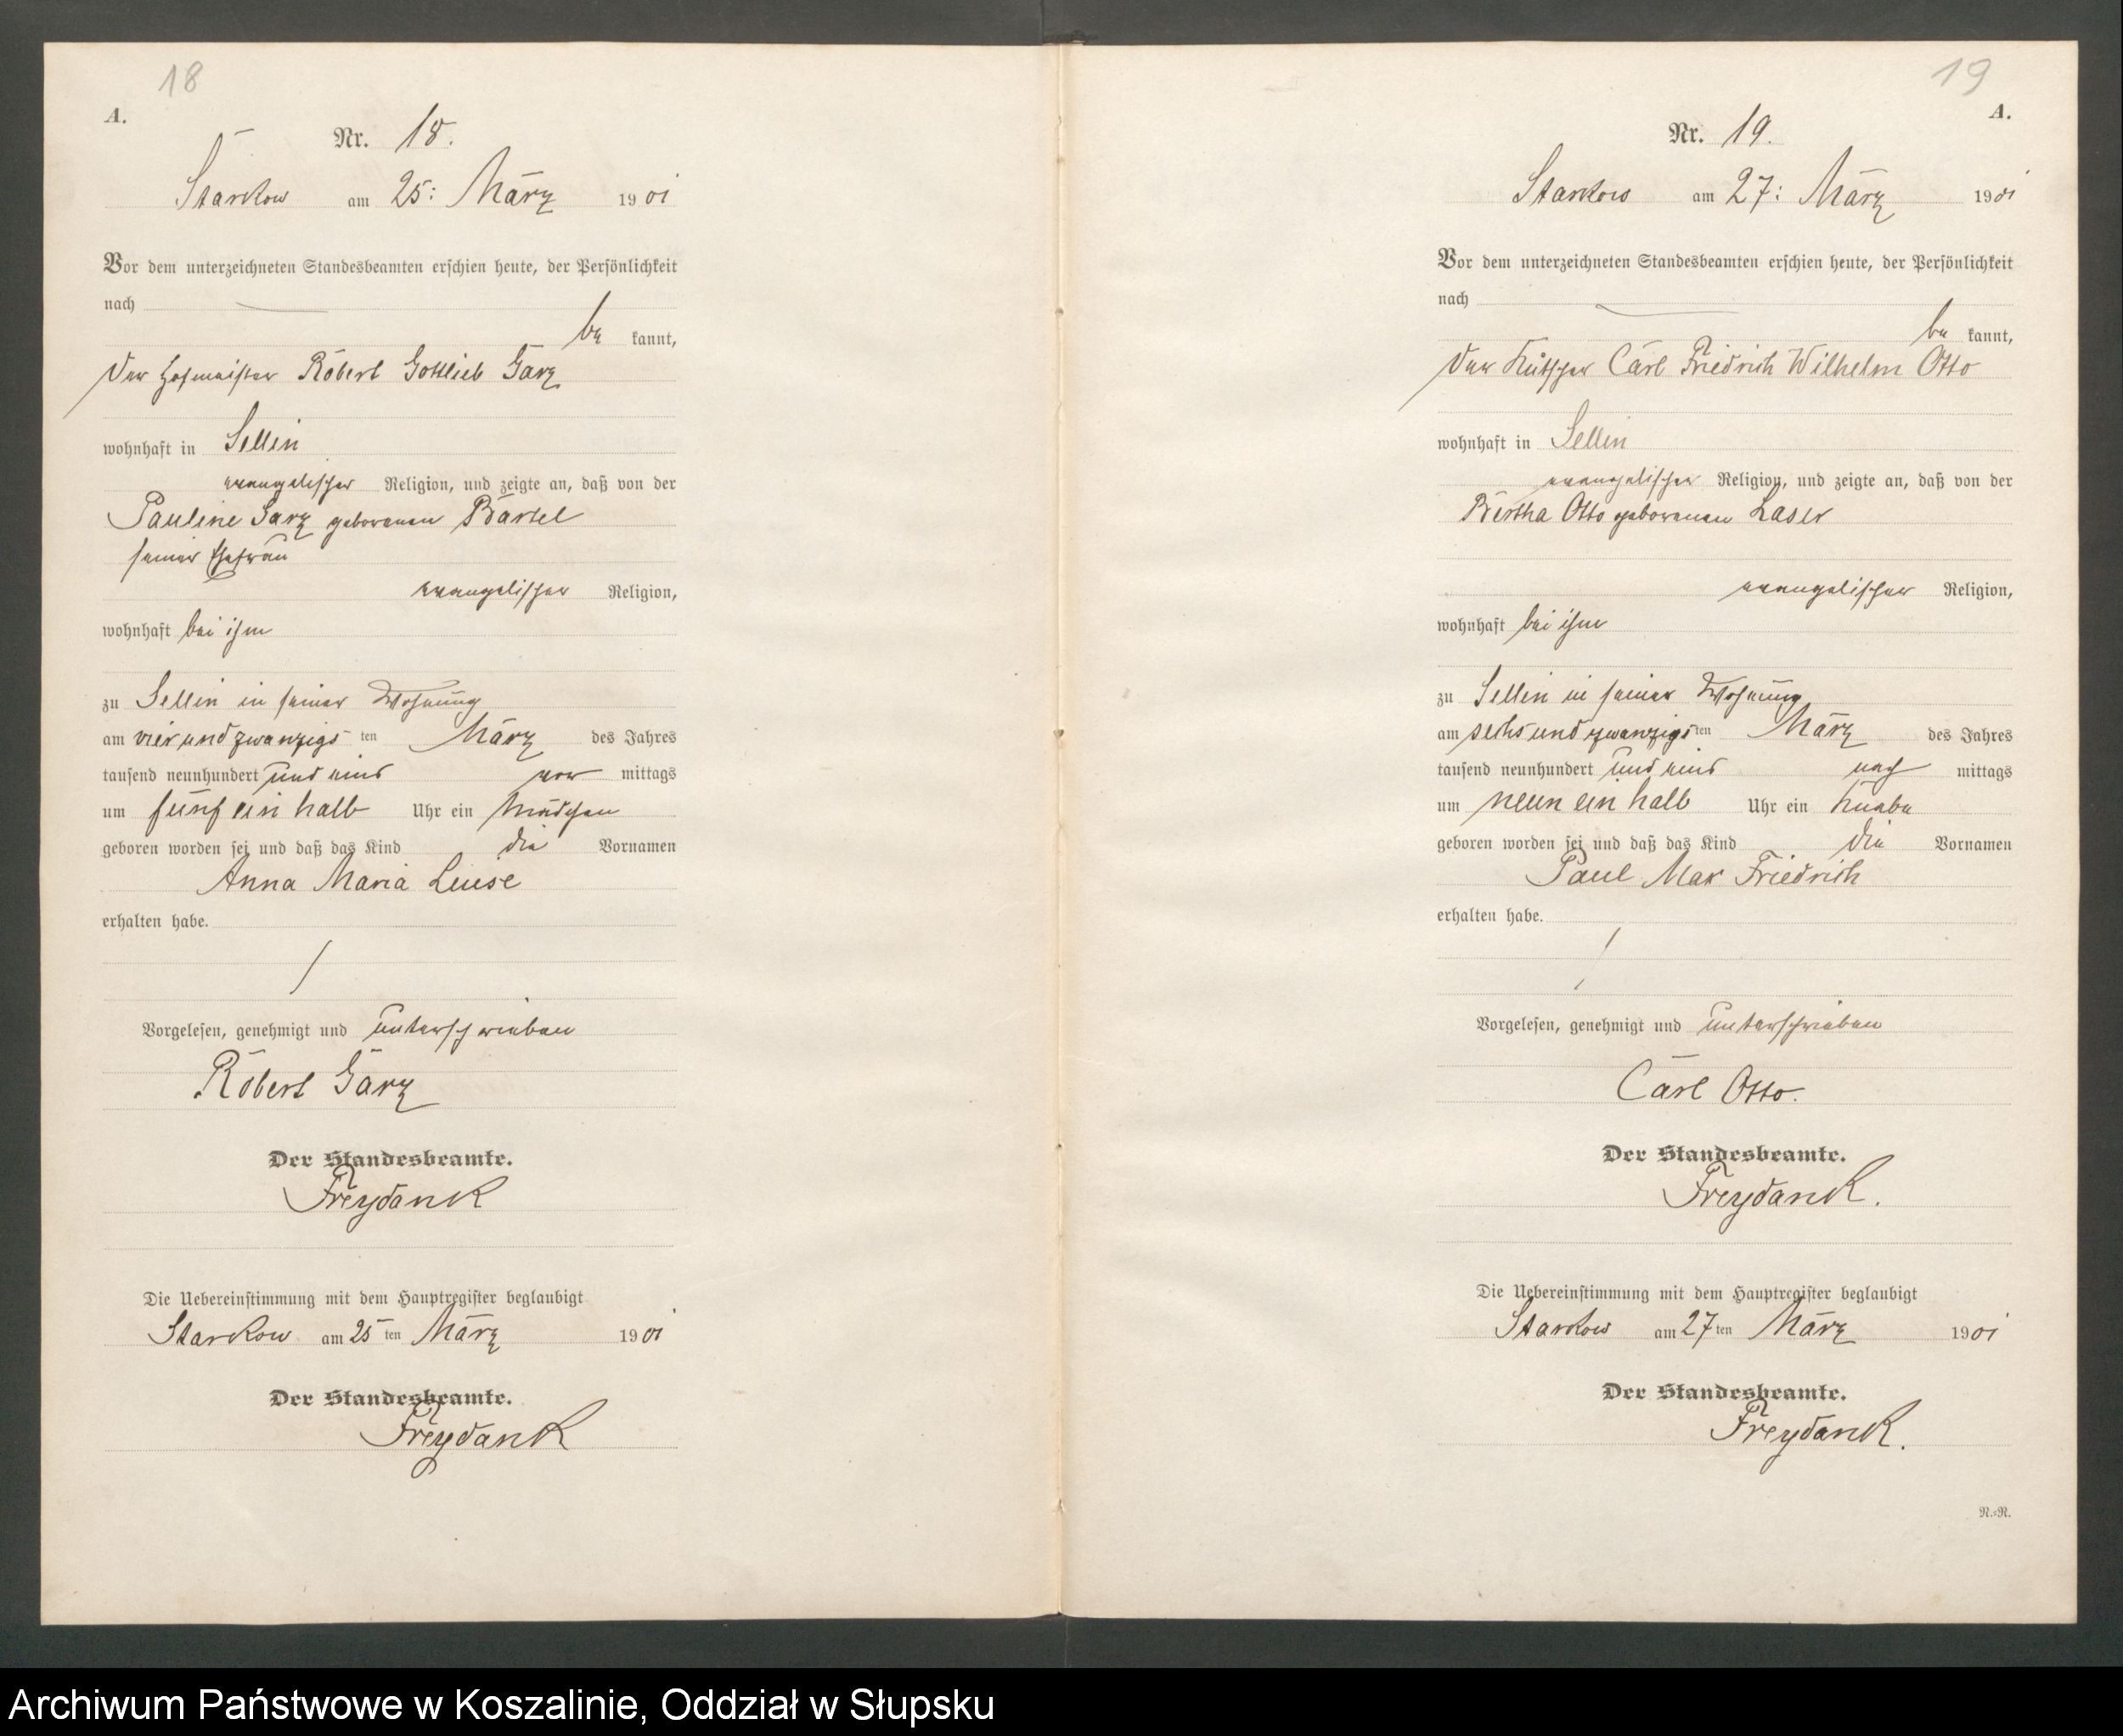 18
A.
Nr. 18.
Starkow am 25: März 1901
Vor dem unterzeichneten Standesbeamten erschien heute, der Persönlichkeit
nach
be kannt,
der Hofmeister Robert Gottlieb Garz
wohnhaft in Sellin
evangelischer Religion, und zeigte an, daß von der
Pauline Garz geborenen Bartel
seiner Ehefrau
evangelischer Religion,
wohnhaft bei ihm
zu Sellin in seiner Wohnung
am vierundzwanzigs ten März des Jahres
tausend neunhundert und eins vor mittags
um fünf ein halb Uhr ein Mädchen
geboren worden sei und daß das Kind die Vornamen
Anna Maria Luise
erhalten habe.
Vorgelesen, genehmigt und unterschrieben
Robert Garz
Der Standesbeamte.
Freydank
Die Uebereinstimmung mit dem Hauptregister beglaubigt
Starkow am 25 ten März 1901
Der Standesbeamte.
Freydank
19
A.
Nr. 19.
Starkow am 27: März 1901
Vor dem unterzeichneten Standesbeamten erschien heute, der Persönlichkeit
nach
be kannt,
der Kutscher Carl Friedrich Wilhelm Otto
wohnhaft in Sellin
evangelischer Religion, und zeigte an, daß von der
Bertha Otto geborenen Laser
evangelischer Religion,
wohnhaft bei ihm
zu Sellin in seiner Wohnung
am sechsundzwanzigs ten März des Jahres
tausend neunhundert und eins nach mittags
um neun ein halb Uhr ein Knabe
geboren worden sei und daß das Kind die Vornamen
Paul Max Friedrich
erhalten habe.
Vorgelesen, genehmigt und unterschrieben
Carl Otto.
Der Standesbeamte.
Freydank.
Die Uebereinstimmung mit dem Hauptregister beglaubigt
Starkow am 27 ten März 1901
Der Standesbeamte.
Freydank.
N.=R.
Archiwum Państwowe w Koszalinie, Oddział w Słupsku